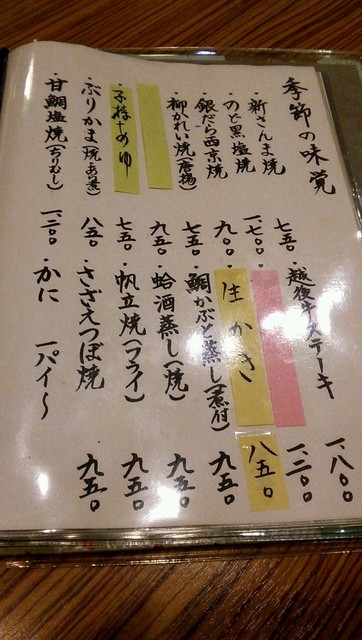 季節の味覚
・新さんま焼 七五〇
・のど黒塩焼 一、七〇〇
・銀だら西京焼 九〇〇
・柳かれい焼(唐揚) 七五〇
九五〇
・子持ちあゆ 七五〇
・ぶりかま(焼・あら煮) 八五〇
・甘鯛塩焼(ちりむし) 一、二〇〇
・越後牛ステーキ 一、八〇〇
一、二〇〇
・生かき 八五〇
・鯛かぶと蒸し(煮付) 九五〇
・蛤酒蒸し(焼) 九五〇
・帆立焼(フライ) 九五〇
・さざえつぼ焼 九五〇
・かに 一パイ〜